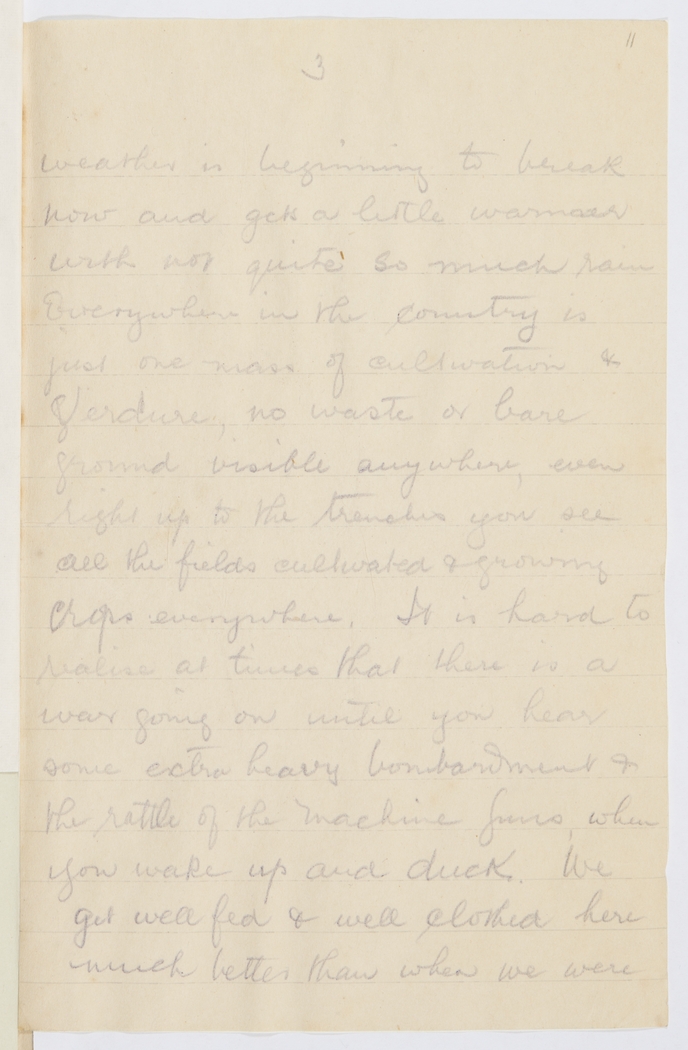 11
3
weather is beginning to break
now and gets a little warmer
with not quite so much rain
Everywhere in the country is
just one mass of cultivation &
Verdure, no waste or bare
ground visible anywhere, even
right up to the trenches you see
all the fields cultivated & growing
Crops everywhere. It is hard to
realise at times that there is a
war going on until you hear
some extra heavy bombardment &
the rattle of the machine guns, when
you wake up and duck. We
get well fed & well clothed here
much better than when we were